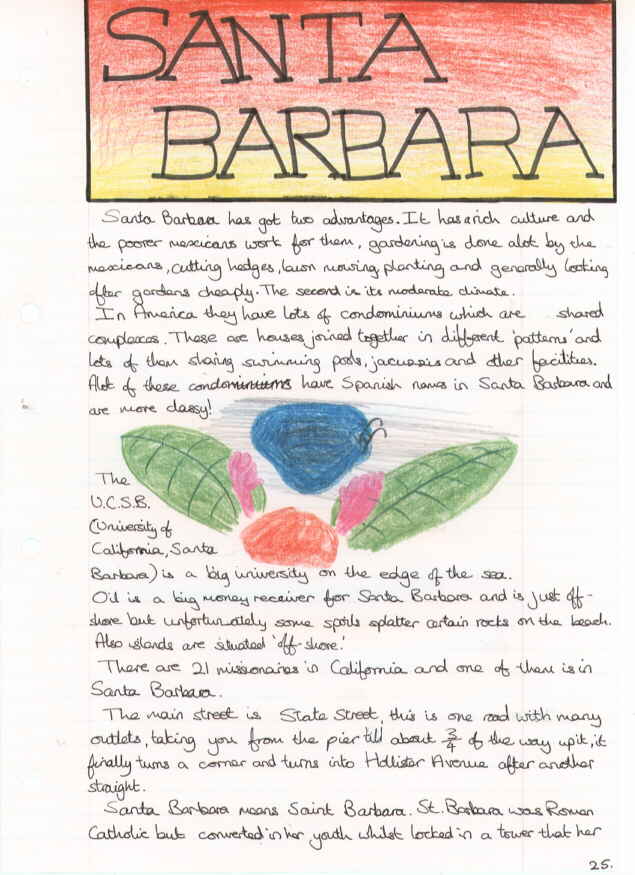 SANTA
BARBARA
Santa Barbara has got two advantages. It has a rich culture and
the poorer mexicans work for them, gardening is done alot by the
mexicans, cutting hedges, lawn mowing, planting and generally looking
after gardens cheaply. The second is its moderate climate.
In America they have lots of condominiums which are shared
complexes. These are houses joined together in different 'patterns' and
lots of them sharing swimming pools, jacuzzis and other facilities.
Alot of these condominiums have Spanish names in Santa Barbara and
are more classy!
The
U.C.S.B.
(University of
California, Santa
Barbara) is a big university on the edge of the sea.
Oil is a big money receiver for Santa Barbara and is just off-
shore but unfortunately some spoils splatter certain rocks on the beach.
Also islands are situated 'off-shore.'
There are 21 missionaires in California and one of them is in
Santa Barbara.
The main street is State Street, this is one road with many
outlets, taking you from the pier till about 3/4 of the way up it, it
finally turns a corner and turns into Hollister Avenue after another
straight.
Santa Barbara means Saint Barbara. St. Barbara was Roman
Catholic but converted in her youth whilst locked in a tower that her
25.